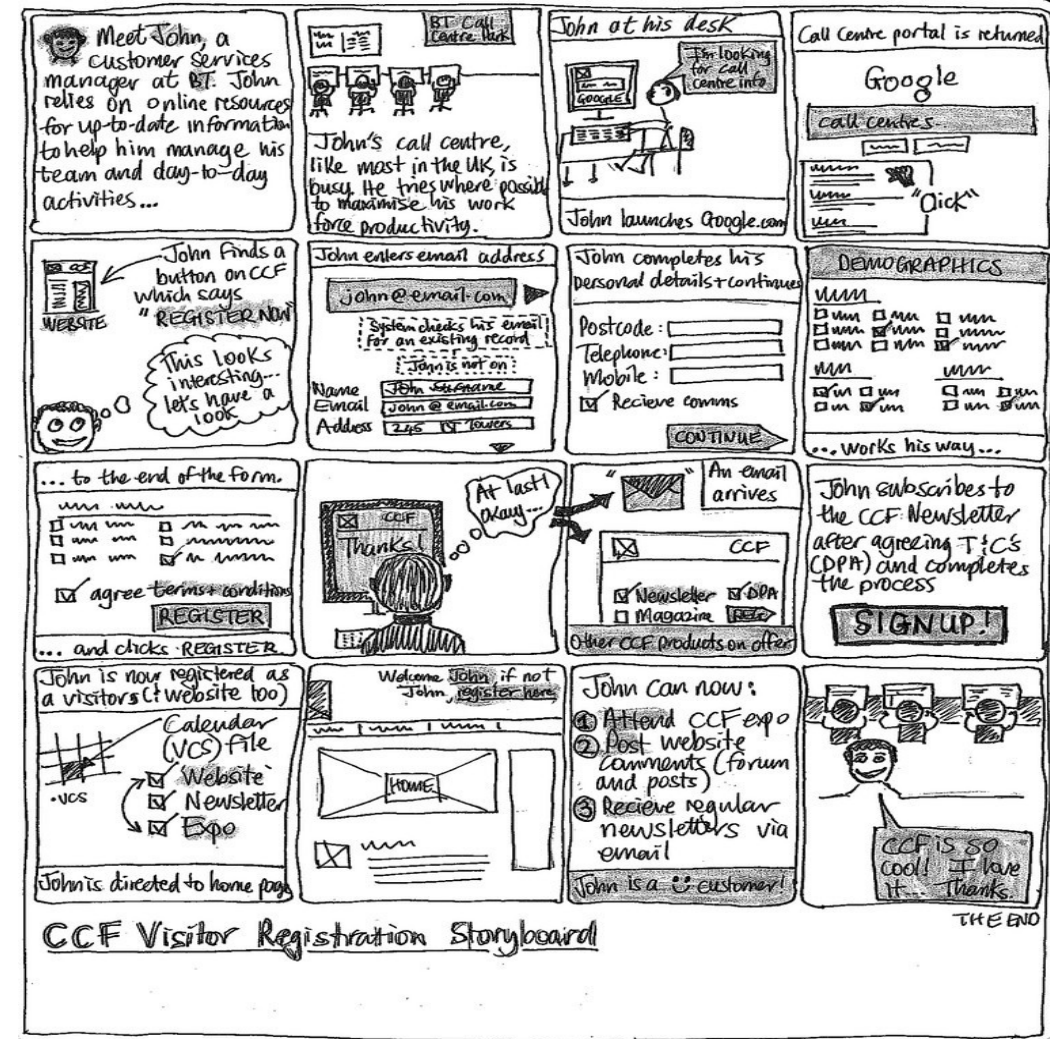 Meet John, a
customer services
manager at BT. John
relies on online resources
for up-to-date information
to help him manage his
team and day-to-day
activities...
BT Call
Centre Park
John's call centre,
like most in the UK, is
busy. He tries where possible
to maximise his work
force productivity.
John at his desk
I'm looking
for call
centre info
GOOGLE
John launches Google.com
Call Centre portal is returned
Google
call centres..
"Click"
John finds a
button on CCF
which says
"REGISTER NOW"
WEBSITE
This looks
interesting...
let's have a
look
John enters email address
john@email.com
System checks his email
for an existing record
John is not on
Name John Surname
Email john@email.com
Address 245 BT Towers
John completes his
personal details + continues
Postcode:
Telephone:
Mobile:
Recieve comms
CONTINUE
DEMOGRAPHICS
...works his way...
... to the end of the form.
agree terms + conditions
REGISTER
... and clicks REGISTER
At last!
okay...
CCF
Thanks!
An email
arrives
CCF
Newsletter DPA
Magazine REG
Other CCF products on offer
John subscribes to
the CCF Newsletter
after agreeing T&C's
(DPA) and completes
the process
SIGNUP!
John is now registered as
a visitors (+ website too)
Calendar
(VCS) file
Website
Newsletter
Expo
.vcs
John is directed to home page
Welcome John, if not
John, register here
HOME
John can now:
① Attend CCF expo
② Post website
comments (forum
and posts)
③ Recieve regular
newsletters via
email
John is a customer!
CCF is so
cool! I love
it... Thanks.
THE END
CCF Visitor Registration Storyboard